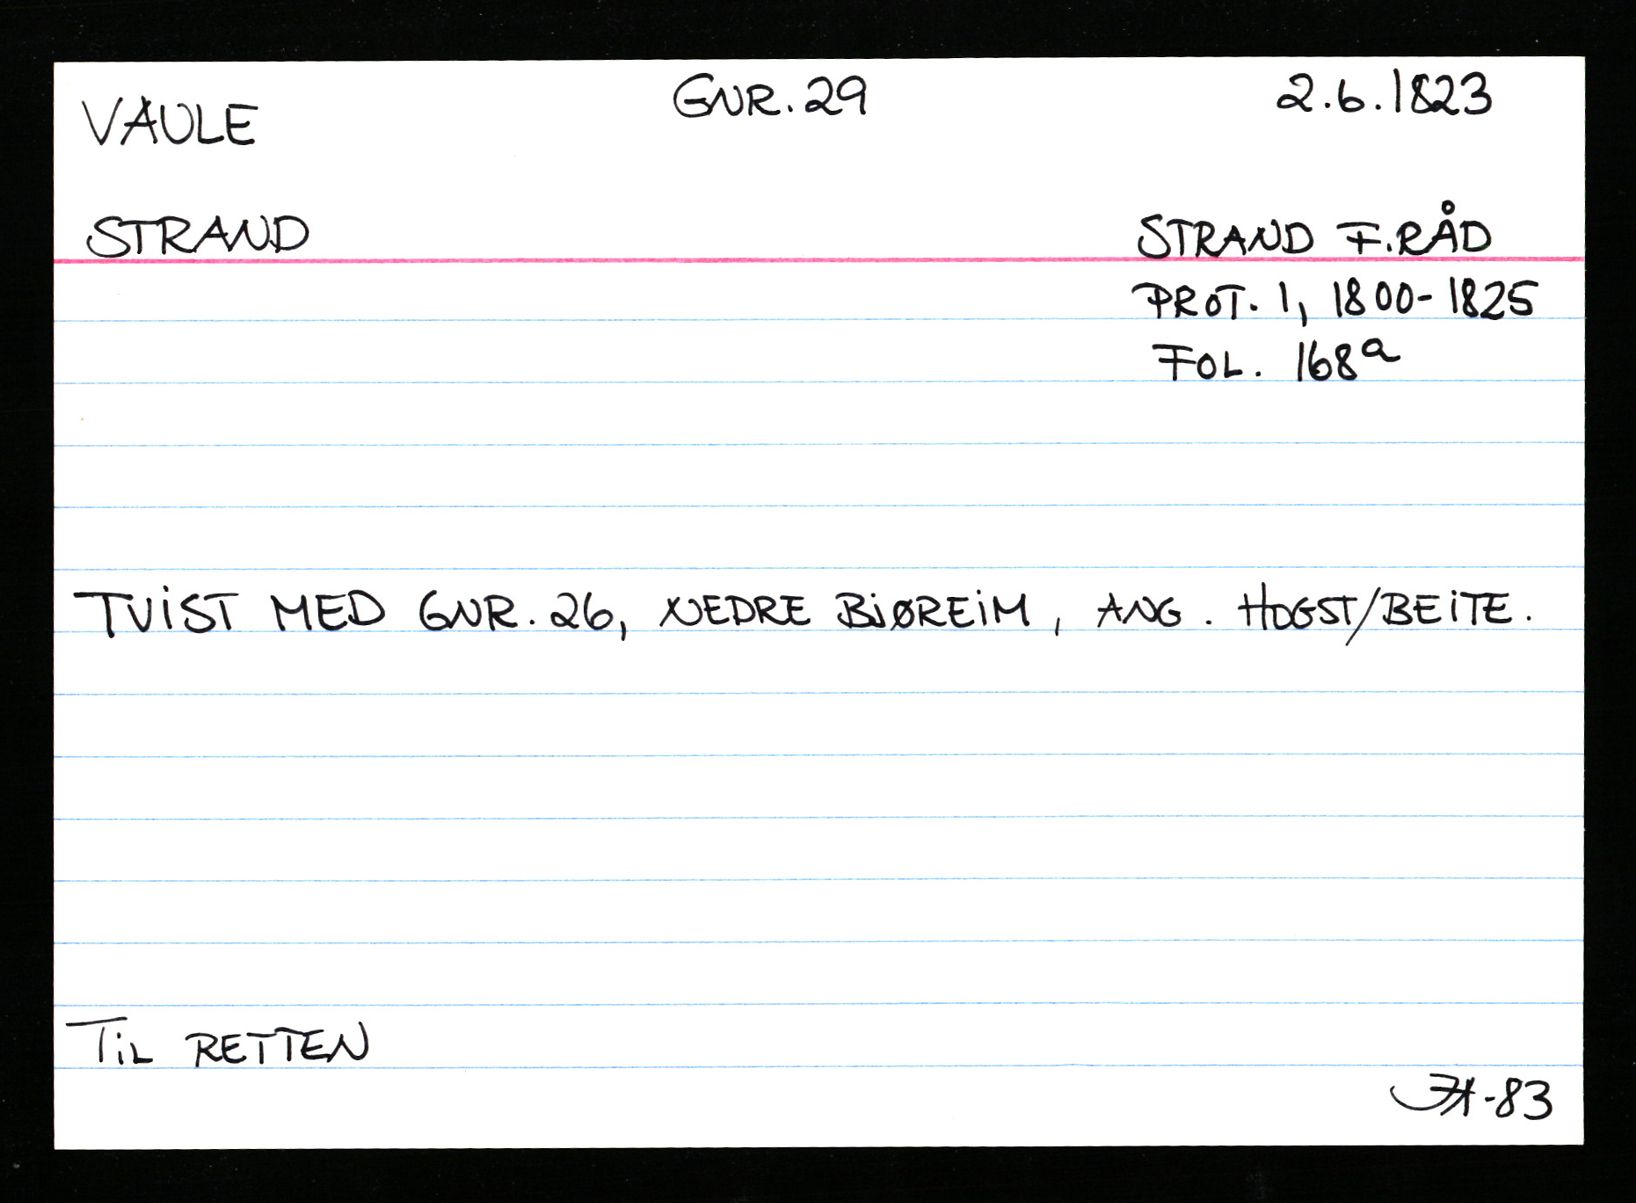 VAULE GNR. 29 2.6.1823
STRAND STRAND F.RÅD
PROT. 1, 1800-1825
FOL. 168a
TVIST MED GNR. 26, NEDRE BJØREIM, ANG. HOGST/BEITE.
TIL RETTEN
-83